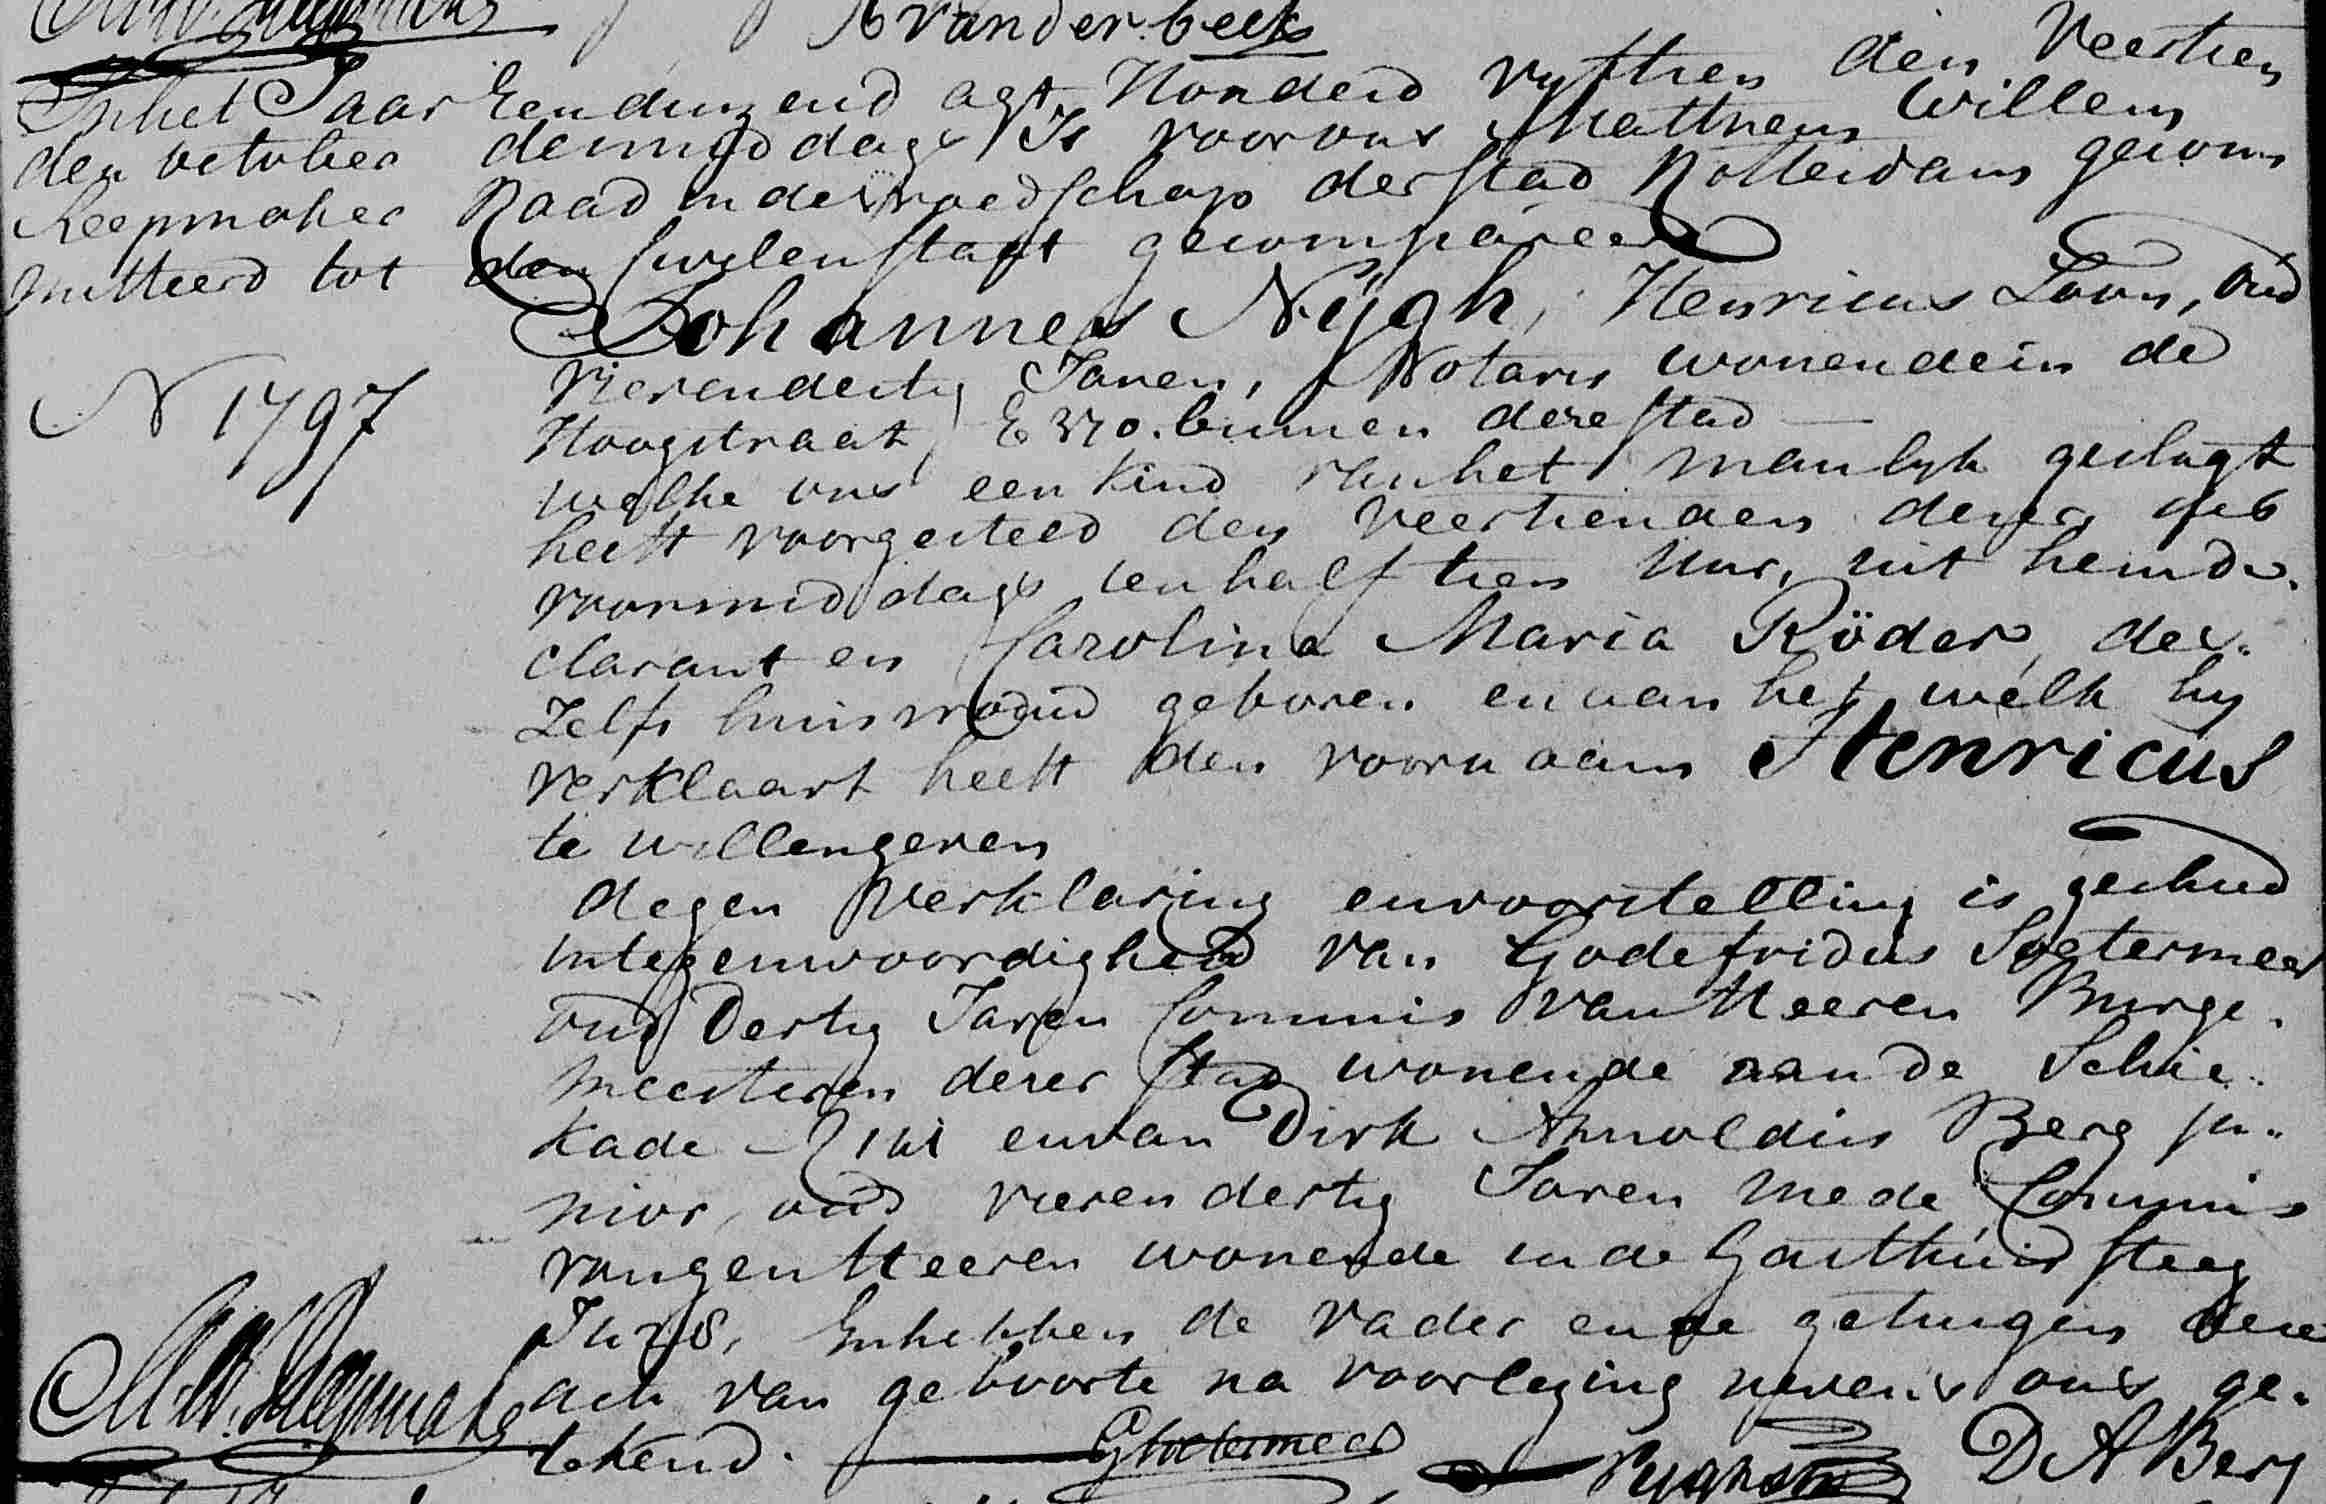 A vander beek
In het Jaar Eenduizend agt Honderd vyftien den Veertien
den october demiddags Is voor ons Mattheus Willem
Reepmaker Raad in de vroedschap der stad Rotterdam gecom
mitteerd tot den Civilen staat gecompareerd
Johannes Nÿgh, Henricus Zoon, oud
vierendertig Jaren, Notaris wonende in de
Hoogstraat, E 370. binnen deze stad
N 1797
welke ons een kind van het manlyk geslagt
heeft voorgesteld den veertienden dezer
voormiddags ten half tien uur, uit hem de.
clarant en Carolina Maria Röder, des.
zelfs huisvrouw geboren en aan het welk hy
verklaart heeft den voornaam Henricus
te willen geven
dezen verklaring en voorstelling is geschied
in tegenwoordigheid van Godefridus Sogtermeer
oud Dertig Jaren Commis van Heeren Burge.
meesteren dezer stad wonende aan de Schie.
kade en van Dirk Arnoldus Berg ju.
nior, oud vierendertig Jaren mede Commis
van gen Heeren wonende in de Gasthuis steeg
En hebben de vader en de getuigen deze
acte van geboorte na voorlezing nevens ons ge.
tekend.
M.W. Reepmaker
D A Berg